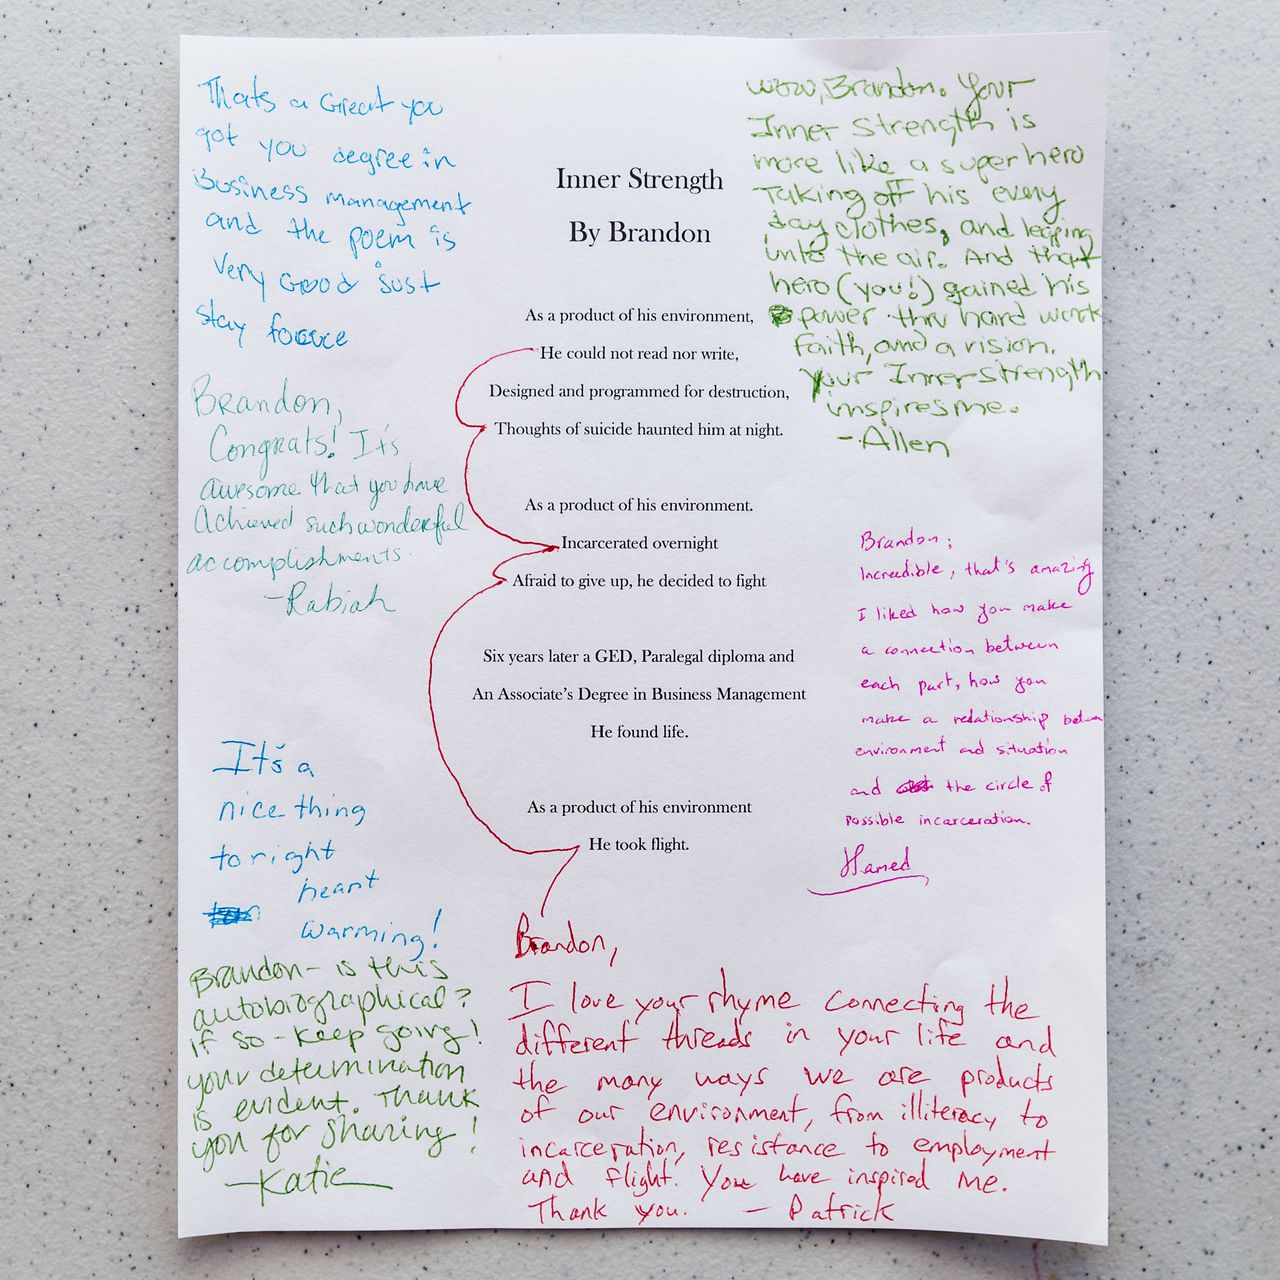 Inner Strength
By Brandon
As a product of his environment,
He could not read nor write,
Designed and programmed for destruction,
Thoughts of suicide haunted him at night.
As a product of his environment.
Incarcerated overnight
Afraid to give up, he decided to fight
Six years later a GED, Paralegal diploma and
An Associate's Degree in Business Management
He found life.
As a product of his environment
He took flight.
Thats a Great you
got you degree in
Business management
and the poem is
Very Good just
stay
Brandon,
Congrats! It's
awesome that you have
achieved such wonderful
accomplishments.
-Rabiah
It's a
nice thing
to right
heart
warming!
Brandon- is this
autobiographical?
if so - keep going!
your determination
is evident. Thank
you for sharing!
-Katie
wow, Brandon. Your
Inner Strength is
more like a super hero
Taking off his every
day clothes, and leaping
into the air. And that
hero (you!) gained his
power thru hard work
faith, and a vision.
Your Inner Strength
inspires me.
-Allen
Brandon;
Incredible, that's amazing
I liked how you make
a connection between
each part, how you
make a relationship between
environment and situation
and the circle of
possible incarceration.
Hamed
Brandon,
I love your rhyme connecting the
different threads in your life and
the many ways we are products
of our environment, from illiteracy to
incarceration, resistance to employment
and flight. You have inspired me.
Thank you. - Patrick